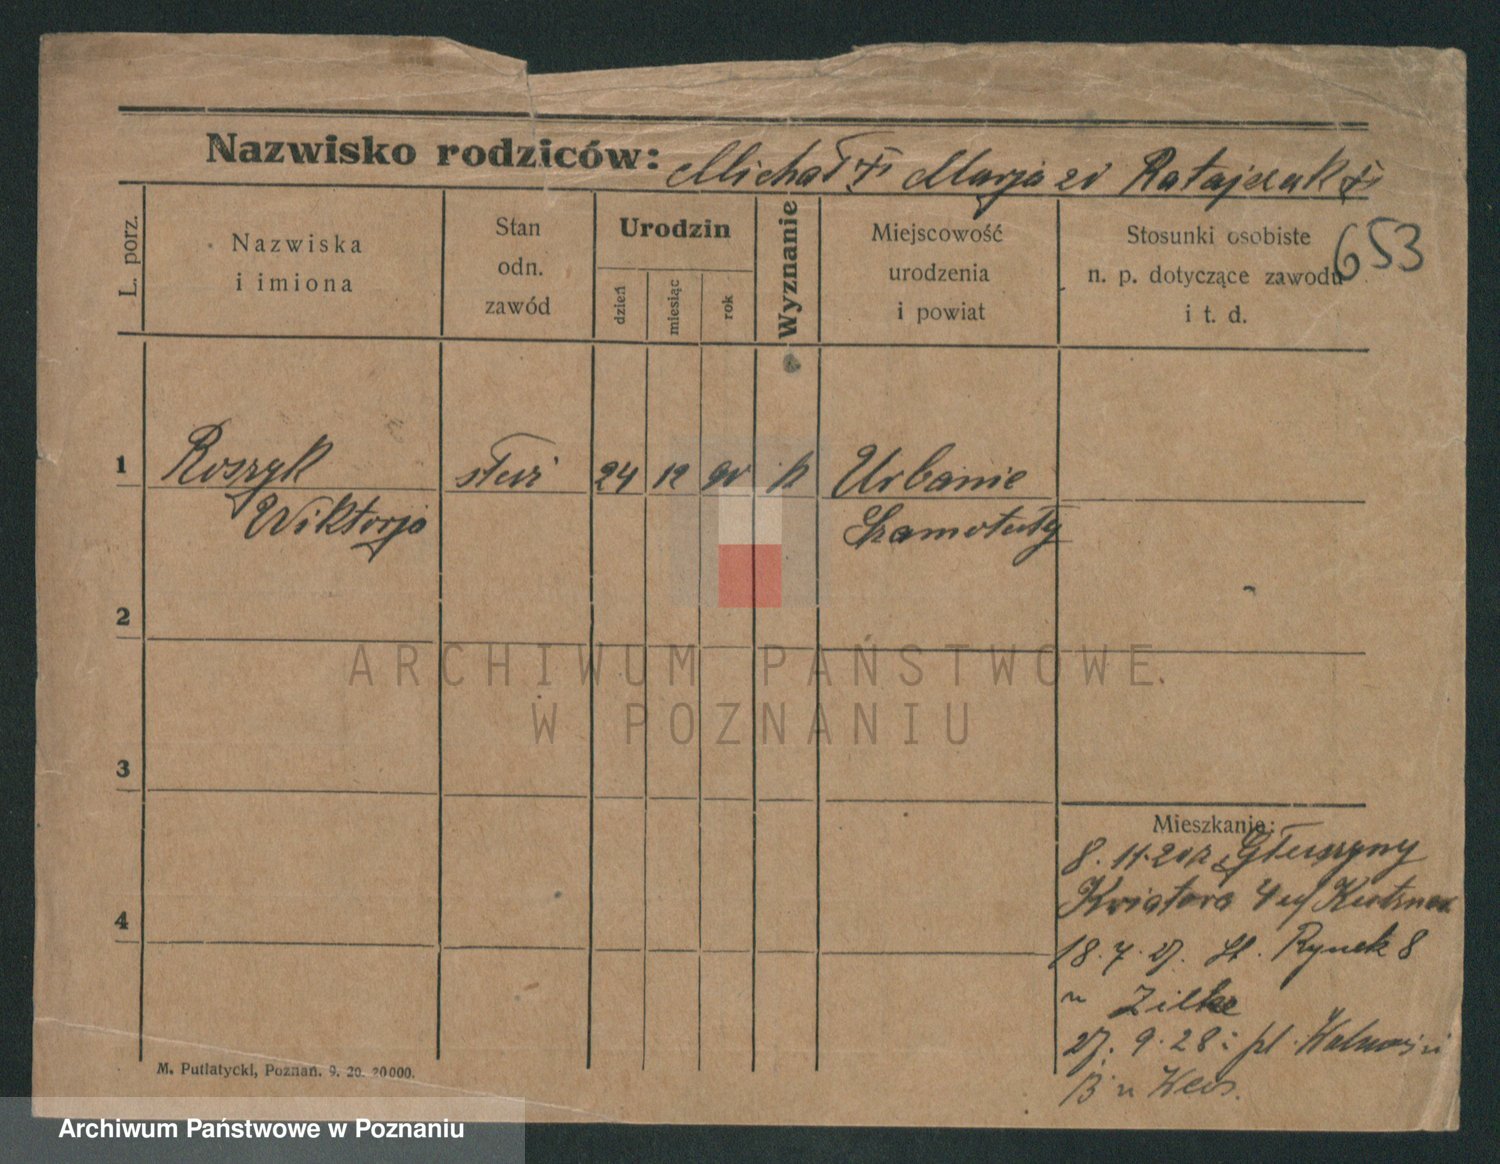 Nazwisko rodziców: Michał + Marja z d Ratajczak +
653
L. porz.
Nazwiska
i imiona
Stan
odn.
zawód
Urodzin
dzień
miesiąc
rok
Wyznanie
Miejscowość
urodzenia
i powiat
Stosunki osobiste
n. p. dotyczące zawodu
i t. d.
1 Roszyk służ 24 12 90 k Urbanie
Wiktorja Szamotuły
2
ARCHIWUM PAŃSTWOWE
W POZNANIU
3
Mieszkanie:
8. 11. 20 z Głuszyny
4
18. 7. 27. St. Rynek 8
u Zilke
27. 9. 28: pl. Wolności
M. Putiatycki, Poznań. 9. 20. 20000.
Archiwum Państwowe w Poznaniu